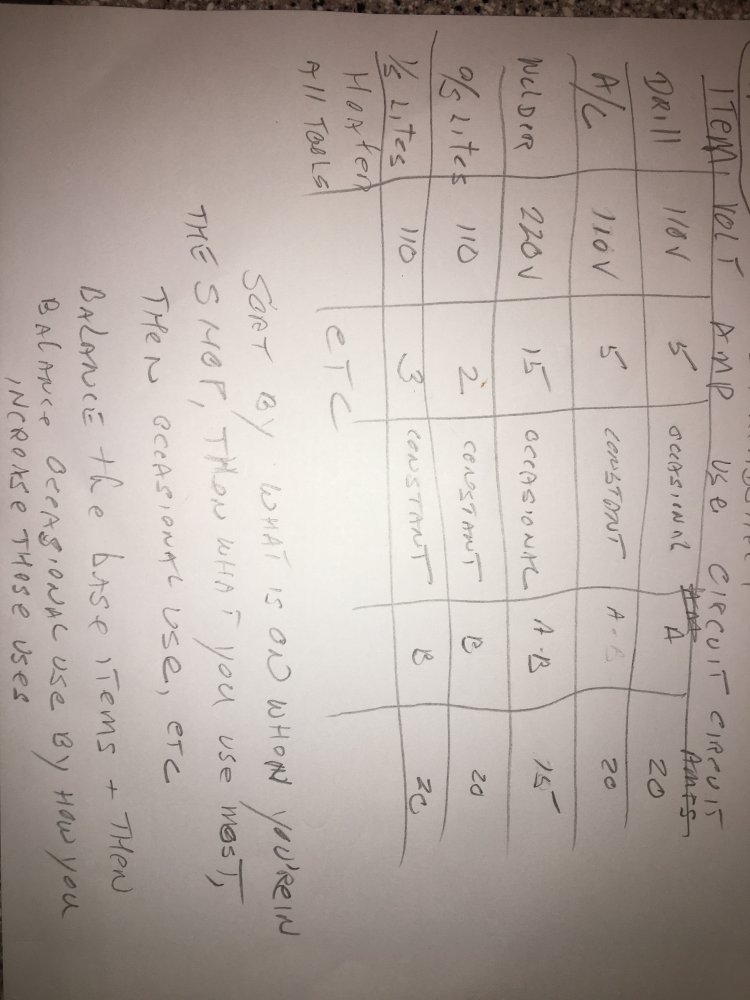 ITEM VOLT AMP USE CIRCUIT CIRCUIT AMPS
DRILL 110V 5 OCCASIONAL A 20
A/C 110V 5 CONSTANT A-B 20
WELDER 220V 15 OCCASIONAL A-B 15
O/S LITES 110 2 CONSTANT B 20
I/S LITES 110 3 CONSTANT B 20
HEATER
All TOOLS ETC
SORT BY WHAT IS ON WHEN YOU'RE IN
THE SHOP, THEN WHAT YOU USE MOST,
THEN OCCASIONAL USE, ETC
BALANCE the base ITEMS + THEN
BALANCE OCCASIONAL USE BY HOW YOU
INCREASE THOSE USES